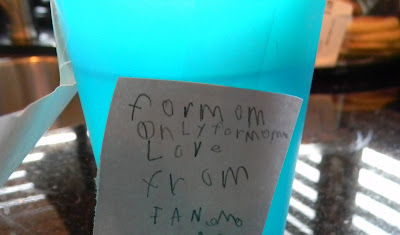 formom
OnLyformom
Love
from